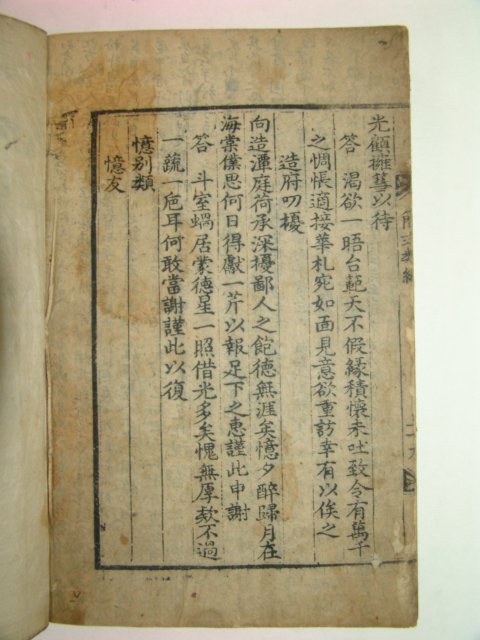 光顧擁篲以待
答 渴欲一晤台範天不假緣積懷未吐致令有萬千
之惆悵適接華札宛如面見意欲重訪幸有以俟之
造府叨擾
向造潭庭荷承深擾鄙人之飽德無涯矣憶夕醉歸月在
海棠僕思何日得獻一芹以報足下之惠謹此申謝
答 斗室蝸居蒙德星一照借光多矣愧無厚欵不過
一蔬一巵耳何敢當謝謹此以復
憶別類
憶友